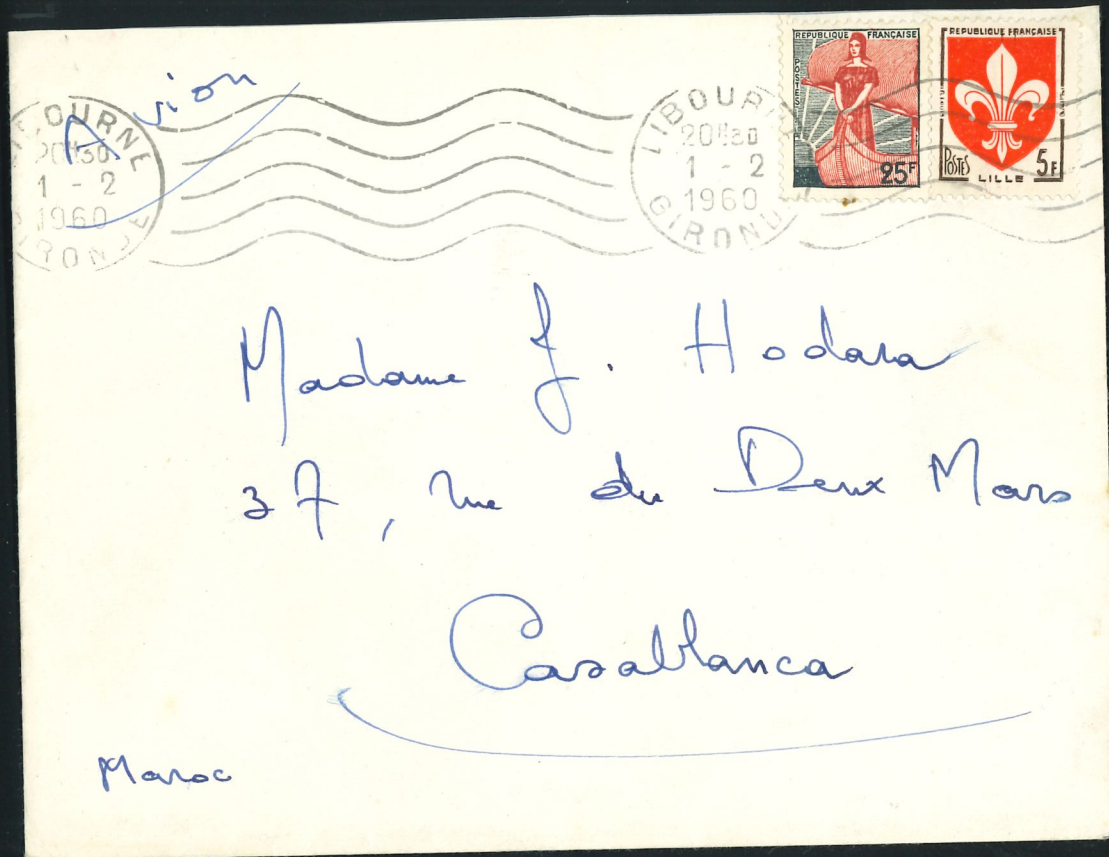 Avion
LIBOURNE
20H30
1 - 2
1960
GIRONDE
LIBOURNE
20H30
1 - 2
1960
GIRONDE
REPUBLIQUE FRANÇAISE
POSTES
25F
REPUBLIQUE FRANÇAISE
POSTES
LILLE
5F
Madame J. Hodara
37, rue du Deux Mars
Casablanca
Maroc